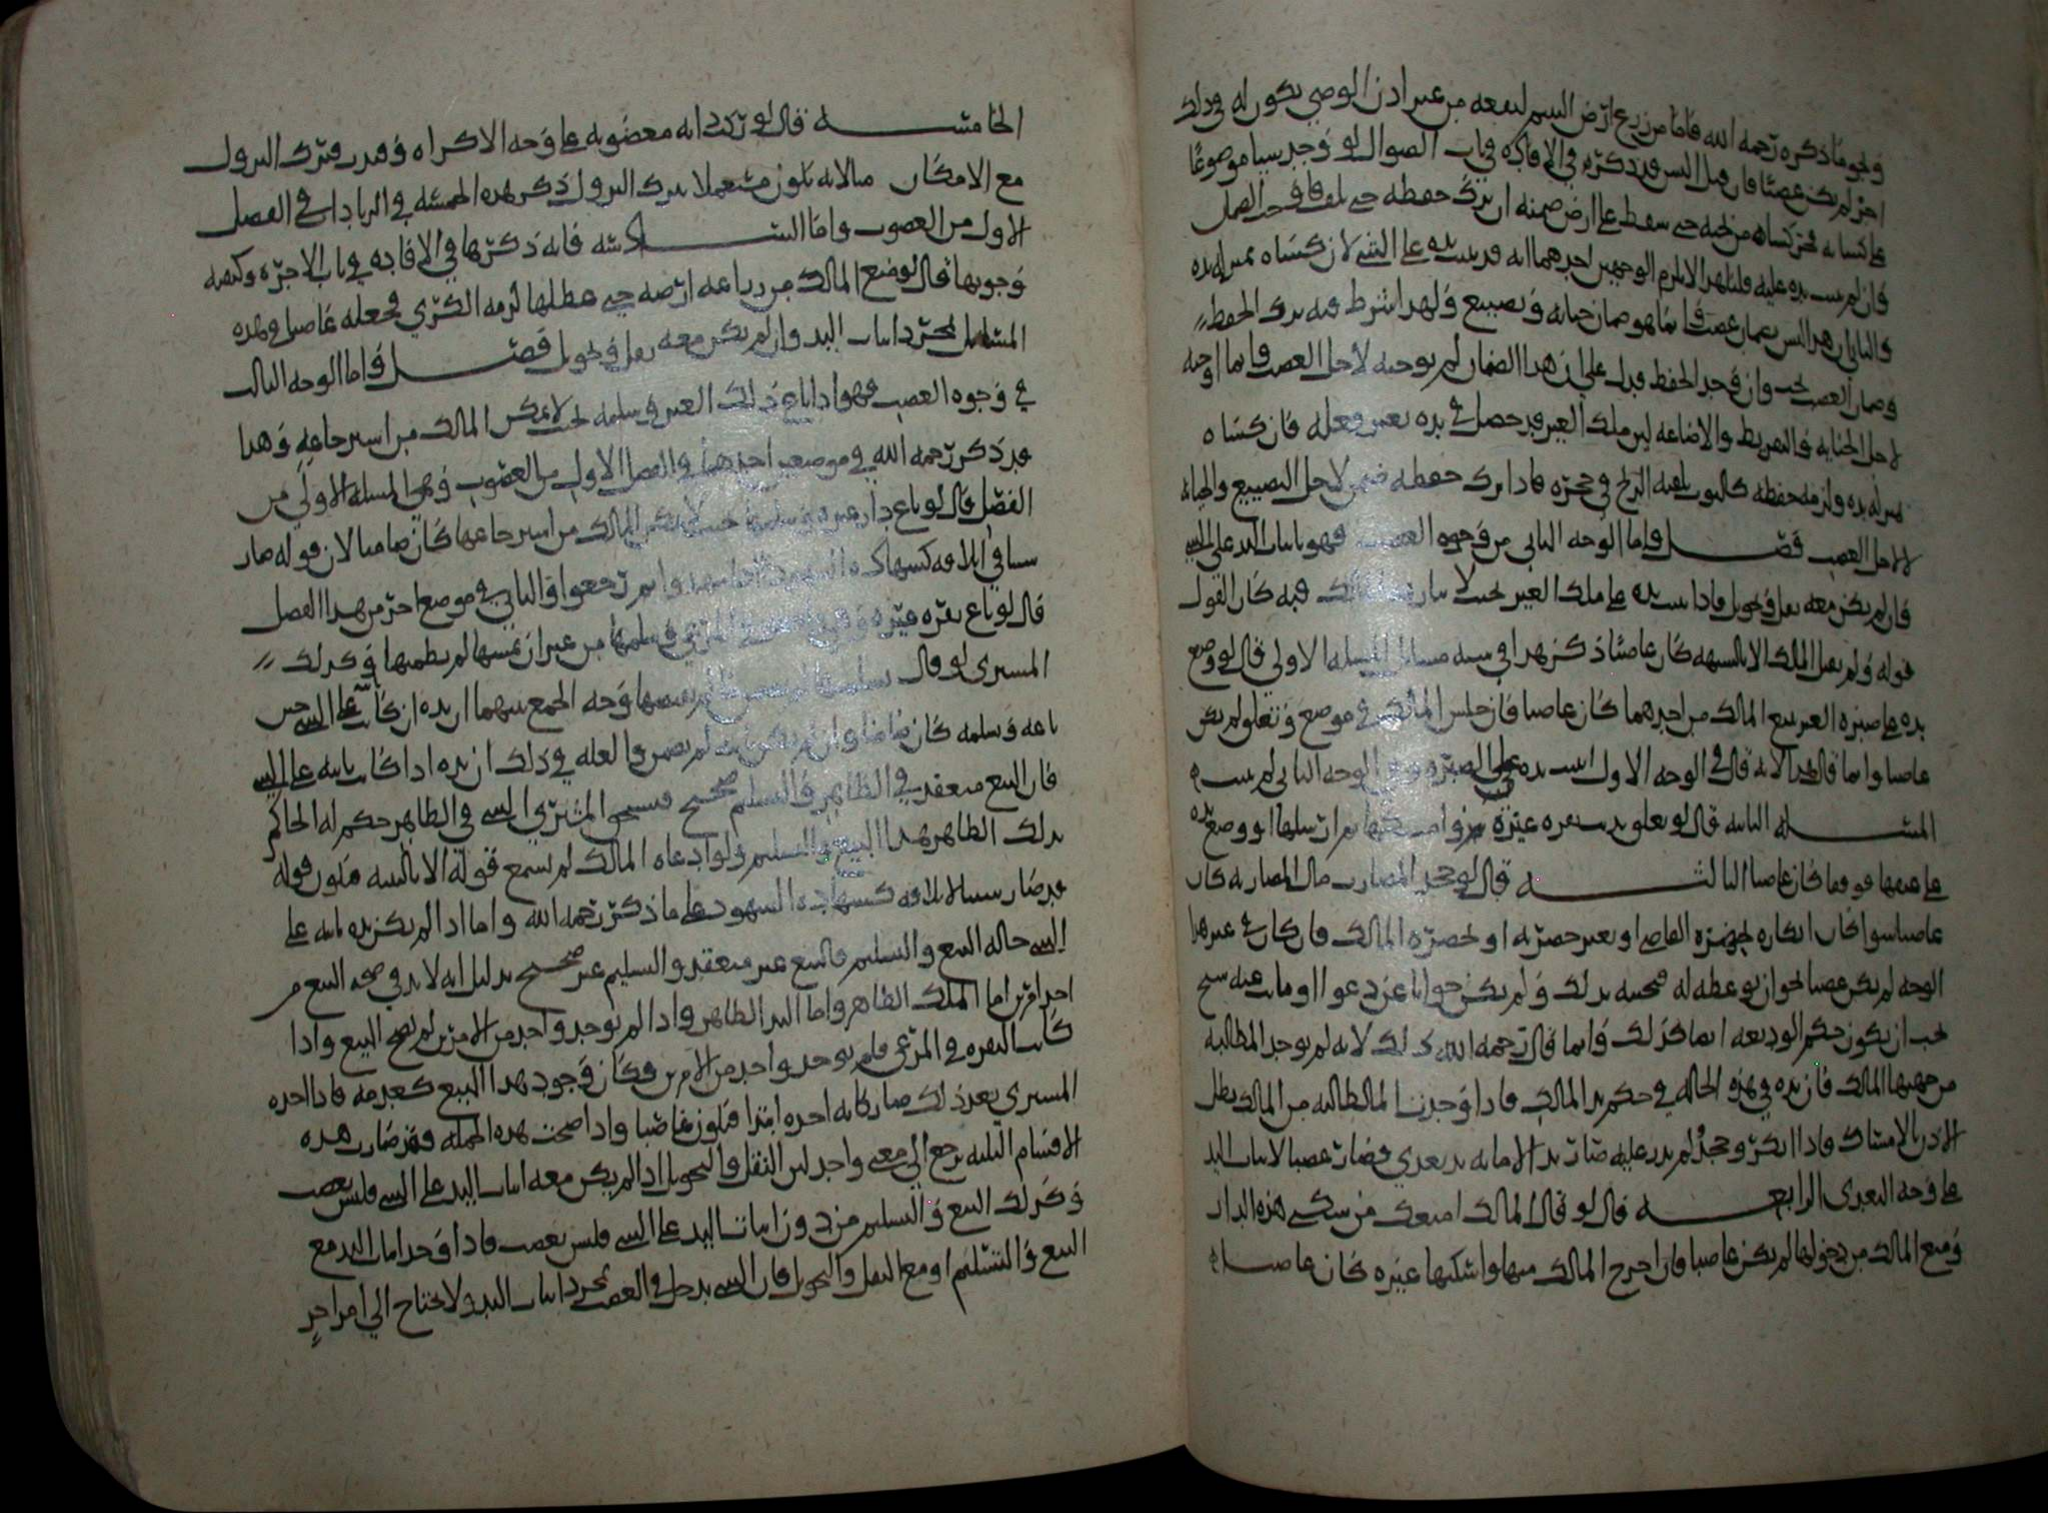 ونحو ما ذكره رحمه الله فاما من زرع ارض اليتيم لنفعه من غير اذن الوصي يكون له في ذلك
اجر لم يكن غصبا فان قيل اليس قد ذكر في الافادة في باب الضوال لو وجد شيئا موضوعا
على كسائه فجر كساه من تحته حتى سقط على الارض ضمنه ان ترك حفظه حتى تلف
وان لم يثبت يده عليه قلنا هذا لا يلزم لوجهين احدهما انه قد ثبت يده على الشيء لان كساه بمنزلة يده
والثاني ان هذا ليس بضمان غصب وانما هو ضمان جناية وتضييع ولهذا اشترط فيه ترك الحفظ
وضمان الغصب يجب وان وجد الحفظ فدل على ان هذا الضمان لم يوجبه لاجل الغصب وانما اوجبه
لاجل الجناية والتفريط والاضاعة لان ملك الغير قد حصل في يده بغير فعله فان كساه
بمنزلة يده ولزمه حفظه كالثوب يلقيه الريح في حجره فاذا ترك حفظه ضمن لاجل التضييع والجناية
لا لاجل الغصب فصل واما الوجه الثاني من وجوه الغصب فهو باثبات اليد على الشيء
فان لم يكن معه نقل وتحويل فاذا ثبت يده على ملك الغير بحيث لا فيه كان القول
قوله ولم يقبل الملك الا بالبينة كان غاصبا ذكر هذا في ستة مسائل المسئلة الاولى قال لو وضع
يده على صبرة الغير فمنع المالك من اخذها كان غاصبا فان حبس المالك في موضع وتغلق لم يكن
غاصبا وانما قال هذا لانه قال في الوجه الاول اثبت يده على الصبرة وفي الوجه الثاني لم يثبت
المسئلة الثانية قال لو تعلق بدابة غيره ثم ارسلها او وضع يده
على عنقها فوقفها كان غاصبا الثالثة قال لو جحد المضارب مال المضاربة كان
غاصبا سوا كان انكاره بحضرة القاضي او بغير حضرته او بحضرة المالك فان كان في غير هذا
الوجه لم يكن غصبا نحو ان يوعظ له فيجيبه بذلك ولم يكن جوابا عن دعوى
يجب ان يكون حكم الوديعة ايضا كذلك وانما قال رحمه الله ذلك لانه لم يوجد المطالبة
من جهة المالك فان يده في هذه الحالة في حكم يد المالك فاذا وجدنا المطالبة من المالك بطل
الاذن بالامساك فاذا انكر وجحد لم يرد عليه صارت يد الامانة يد تعدي فصارت غصبا لاثبات اليد
على وجه التعدي الرابعة قال لو قال المالك امنعك من سكنى هذه الدار
ومنع المالك من دخولها لم يكن غاصبا فان اخرج المالك منها واسكنها غيره كان غاصبا
الخامسة قال لو ركب دابة مغصوبة على وجه الاكراه وقدر فترك النزول
مع الامكان ضمن لانه يكون مستعملا بترك النزول ذكر هذه الخمسة في الزيادات في الفصل
الاول من الغصوب واما السادسة فانه ذكرها في الافادة في باب الاجرة وكيفية
وجوبها قال لو منع المالك من زراعة ارضه حتى عطلها لزمه الكرى فجعله غاصبا في هذه
المسائل لمجرد اثبات اليد وان لم يكن معه نقل وتحويل فصل واما الوجه الثالث
في وجوه الغصب فهو اذا باع ذلك الغير وسلمه بحيث لا يمكن المالك من استرجاعه وهذا
قد ذكر رحمه الله في موضعين احدهما في الفصل الاول من الغصوب وهي المسئلة الاولى من
الفصل قال لو باع دار غيره وسلمها حيث لا يمكن المالك من استرجاعها كان ضامنا لان قوله صار
سببا في اتلافه كشهادة اثنين ثم رجعوا والثاني في موضع اخر من هذا الفصل
قال لو باع بقرة غيره وهي في المرعى وسلمها من غير ان يمسها لم يضمنها وكذلك
المشتري لو قال لم يضمنها وجه الجمع بينهما ان يده ان كانت على الشيء حين
باعه وسلمه كان ضامنا وان لم يكن ثابته لم يضمن والعلة في ذلك ان يده اذا كانت ثابتة على الشيء
فان البيع منعقد في الظاهر والتسليم صحيح فيستحق المشتري الشيء في الظاهر حكم له الحاكم
بذلك الظاهر هذا البيع والتسليم ولو ادعاه المالك لم يسمع قوله الا بالبينة فيكون قوله
قد صار سببا لاتلافه كشهادة الشهود على ما ذكر رحمه الله واما اذا لم يكن يده ثابتة على
الشيء حالة البيع والتسليم فالبيع غير منعقد والتسليم غير صحيح بدليل انه لا بد في صحة البيع من
احد امرين اما الملك الظاهر واما اليد الظاهرة واذا لم يوجد واحد من الامرين لم يصح البيع واذا
كانت البقرة في المرعى فلم يوجد واحد من الامرين فكان وجود هذا البيع كعدمه فاذا اخذه
المشتري بعد ذلك صار كانه اخذه ابتدا فيكون غاصبا واذا صحت هذه الجملة فقد صارت هذه
الاقسام الثلاثة ترجع الى معنى واحد لان النقل والتحويل اذا لم يكن معه اثبات اليد على الشيء فليس بغصب
وكذلك البيع والتسليم من دون اثبات اليد على الشيء فليس بغصب فاذا وجد اثبات اليد مع
البيع والتسليم او مع النقل والتحويل فان الشيء يدخل في الغصب بمجرد اثبات اليد ولا يحتاج الى امر اخر